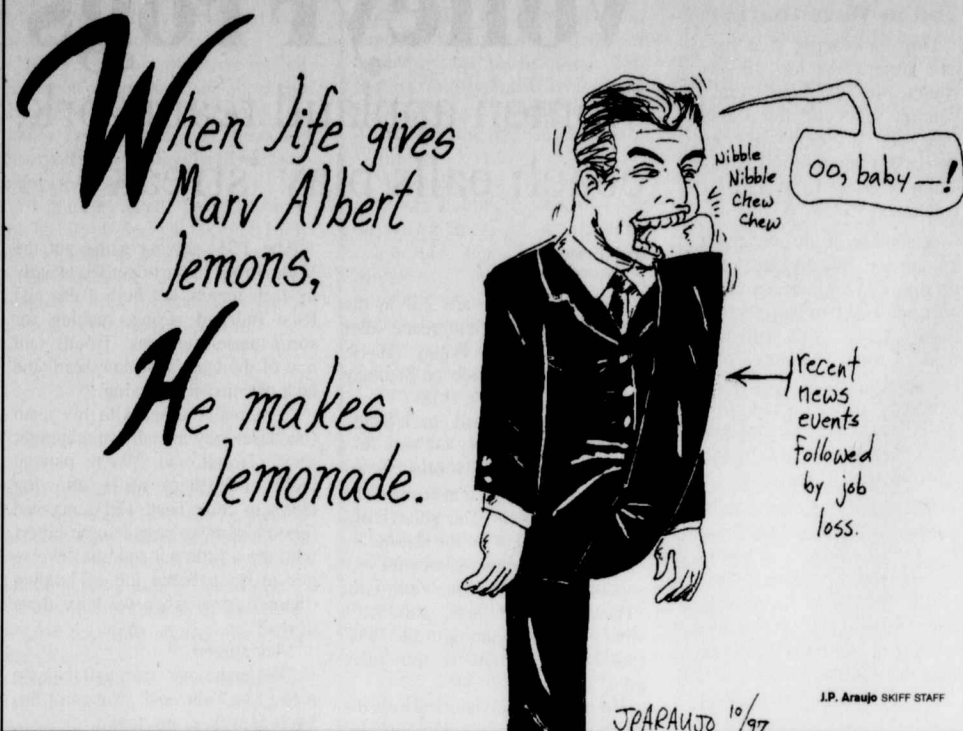 When life gives
Marv Albert
lemons,
He makes
lemonade.
Nibble
Nibble
chew
chew
oo, baby—!
recent
news
events
followed
by job
loss.
J.P. Araujo SKIFF STAFF
JPARAUJO 10/97